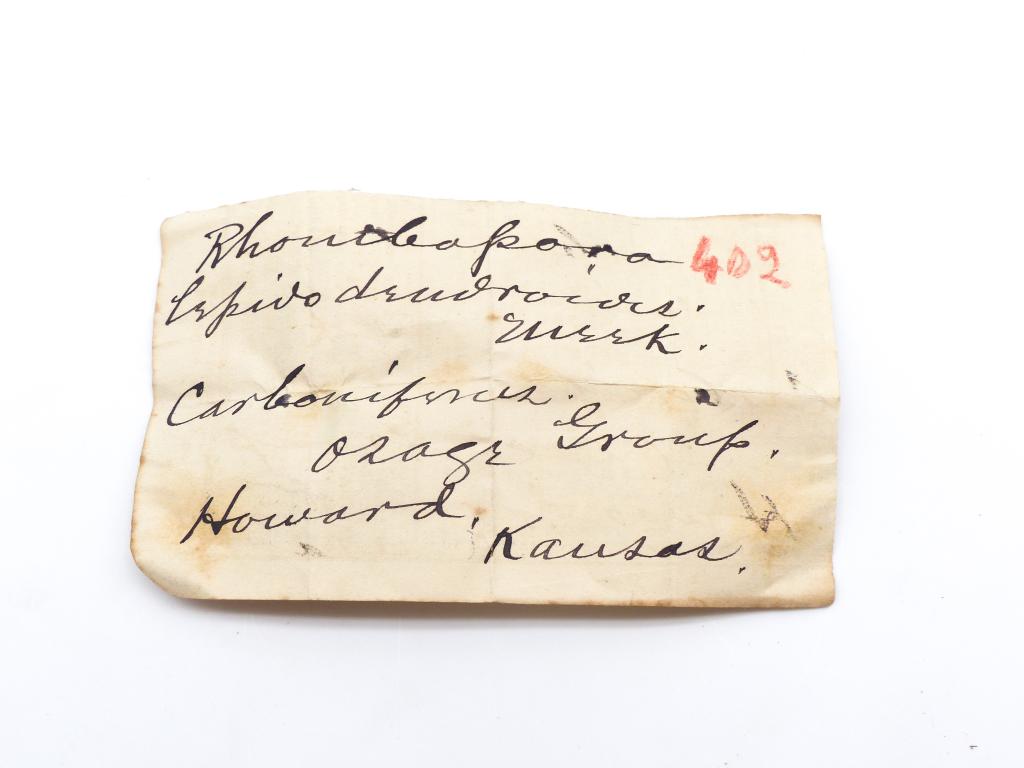 Rhombopora 402
lepidodendroides.
Meek.
Carboniferus.
Osage Group.
Howard,
Kansas.